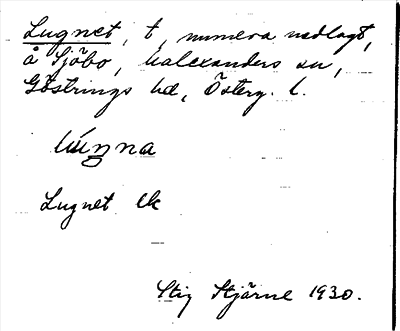 Lugnet, t, numera nedlagt,
å Sjöbo, Valexanders sn,
Göstrings hd, Österg. l.
lúŋna
Lugnet ek
Stig Stjärne 1930.